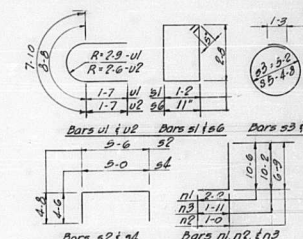 7-10
8-8
R=2-9-u1
R=2-6-u2
1-7 u1
1-7 u2
5"
2-8
s1 1-2
s6 11"
1-3
s3=5-2
s5-4-8
Bars u1 & u2
Bars s1 & s6
Bars s3 &
5-6 s2
5-0 s4
4-8
4-6
10-6
10-2
6-9
n1 2-2
n3 1-11
n2 1-0
Bars s2 & s4
Bars n1 n2 & n3